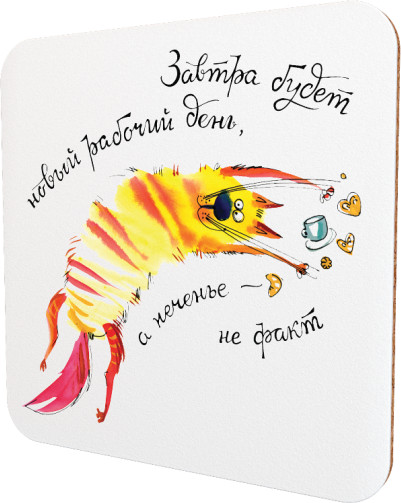 Завтра будет
новый рабочий день,
а печенье —
не факт